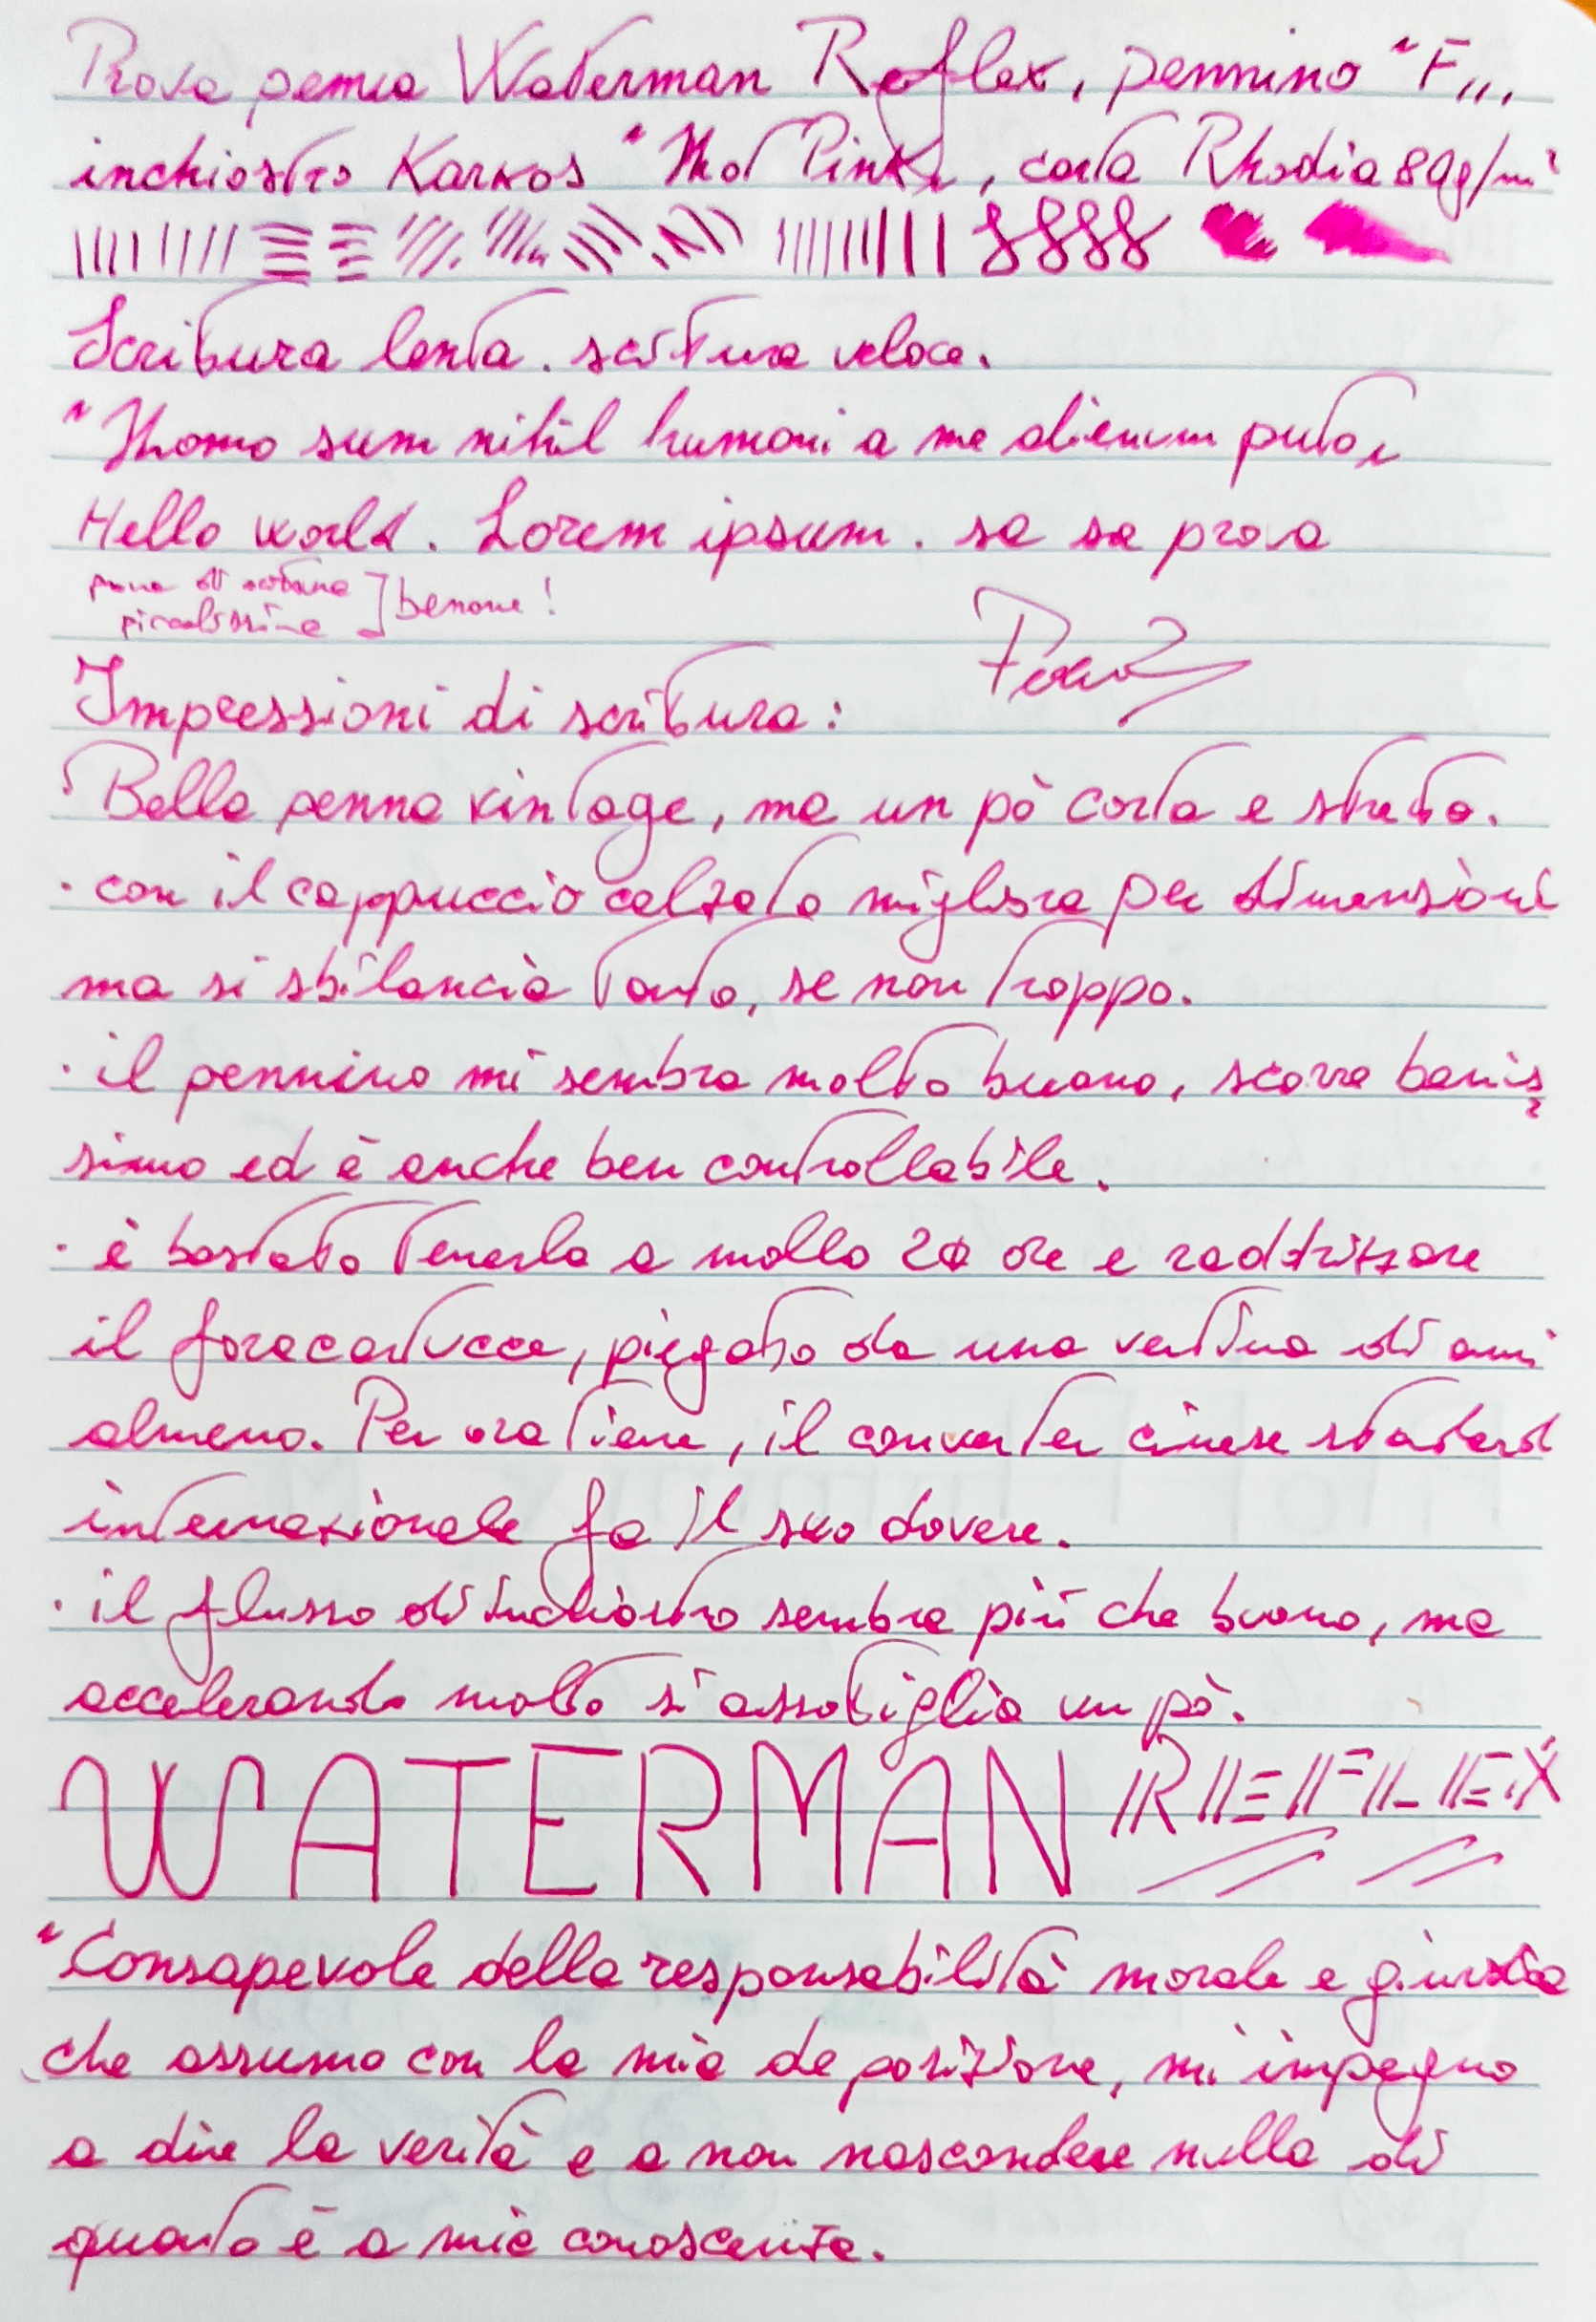 Prova penna Waterman Reflex, pennino "F",
inchiostro Karkos "Hot Pink", carta Rhodia 80g/m²
Scrittura lenta. scrittura veloce.
"Homo sum nihil humani a me alienum puto"
Hello world. Lorem ipsum. sa sa prova
prova di scrittura
piccolissima ] benone!
Impressioni di scrittura:
Bella penna vintage, ma un pò corta e stretta.
· con il cappuccio calzato migliora per dimensioni
ma si sbilancia tanto, se non troppo.
· il pennino mi sembra molto buono, scorre benis
simo ed è anche ben controllabile.
· è bastato tenerla a mollo 20 ore e raddrizzare
il foracartucce, piegato da una ventina di anni
almeno. Per ora tiene, il converter cinese standard
internazionale fa il suo dovere.
· il flusso di inchiostro sembra più che buono, ma
accelerando molto si assottiglia un pò.
WATERMAN REFLEX
"Consapevole della responsabilità morale e giuridica
che assumo con la mia deposizione, mi impegno
a dire la verità e a non nascondere nulla di
quanto è a mia conoscenza.